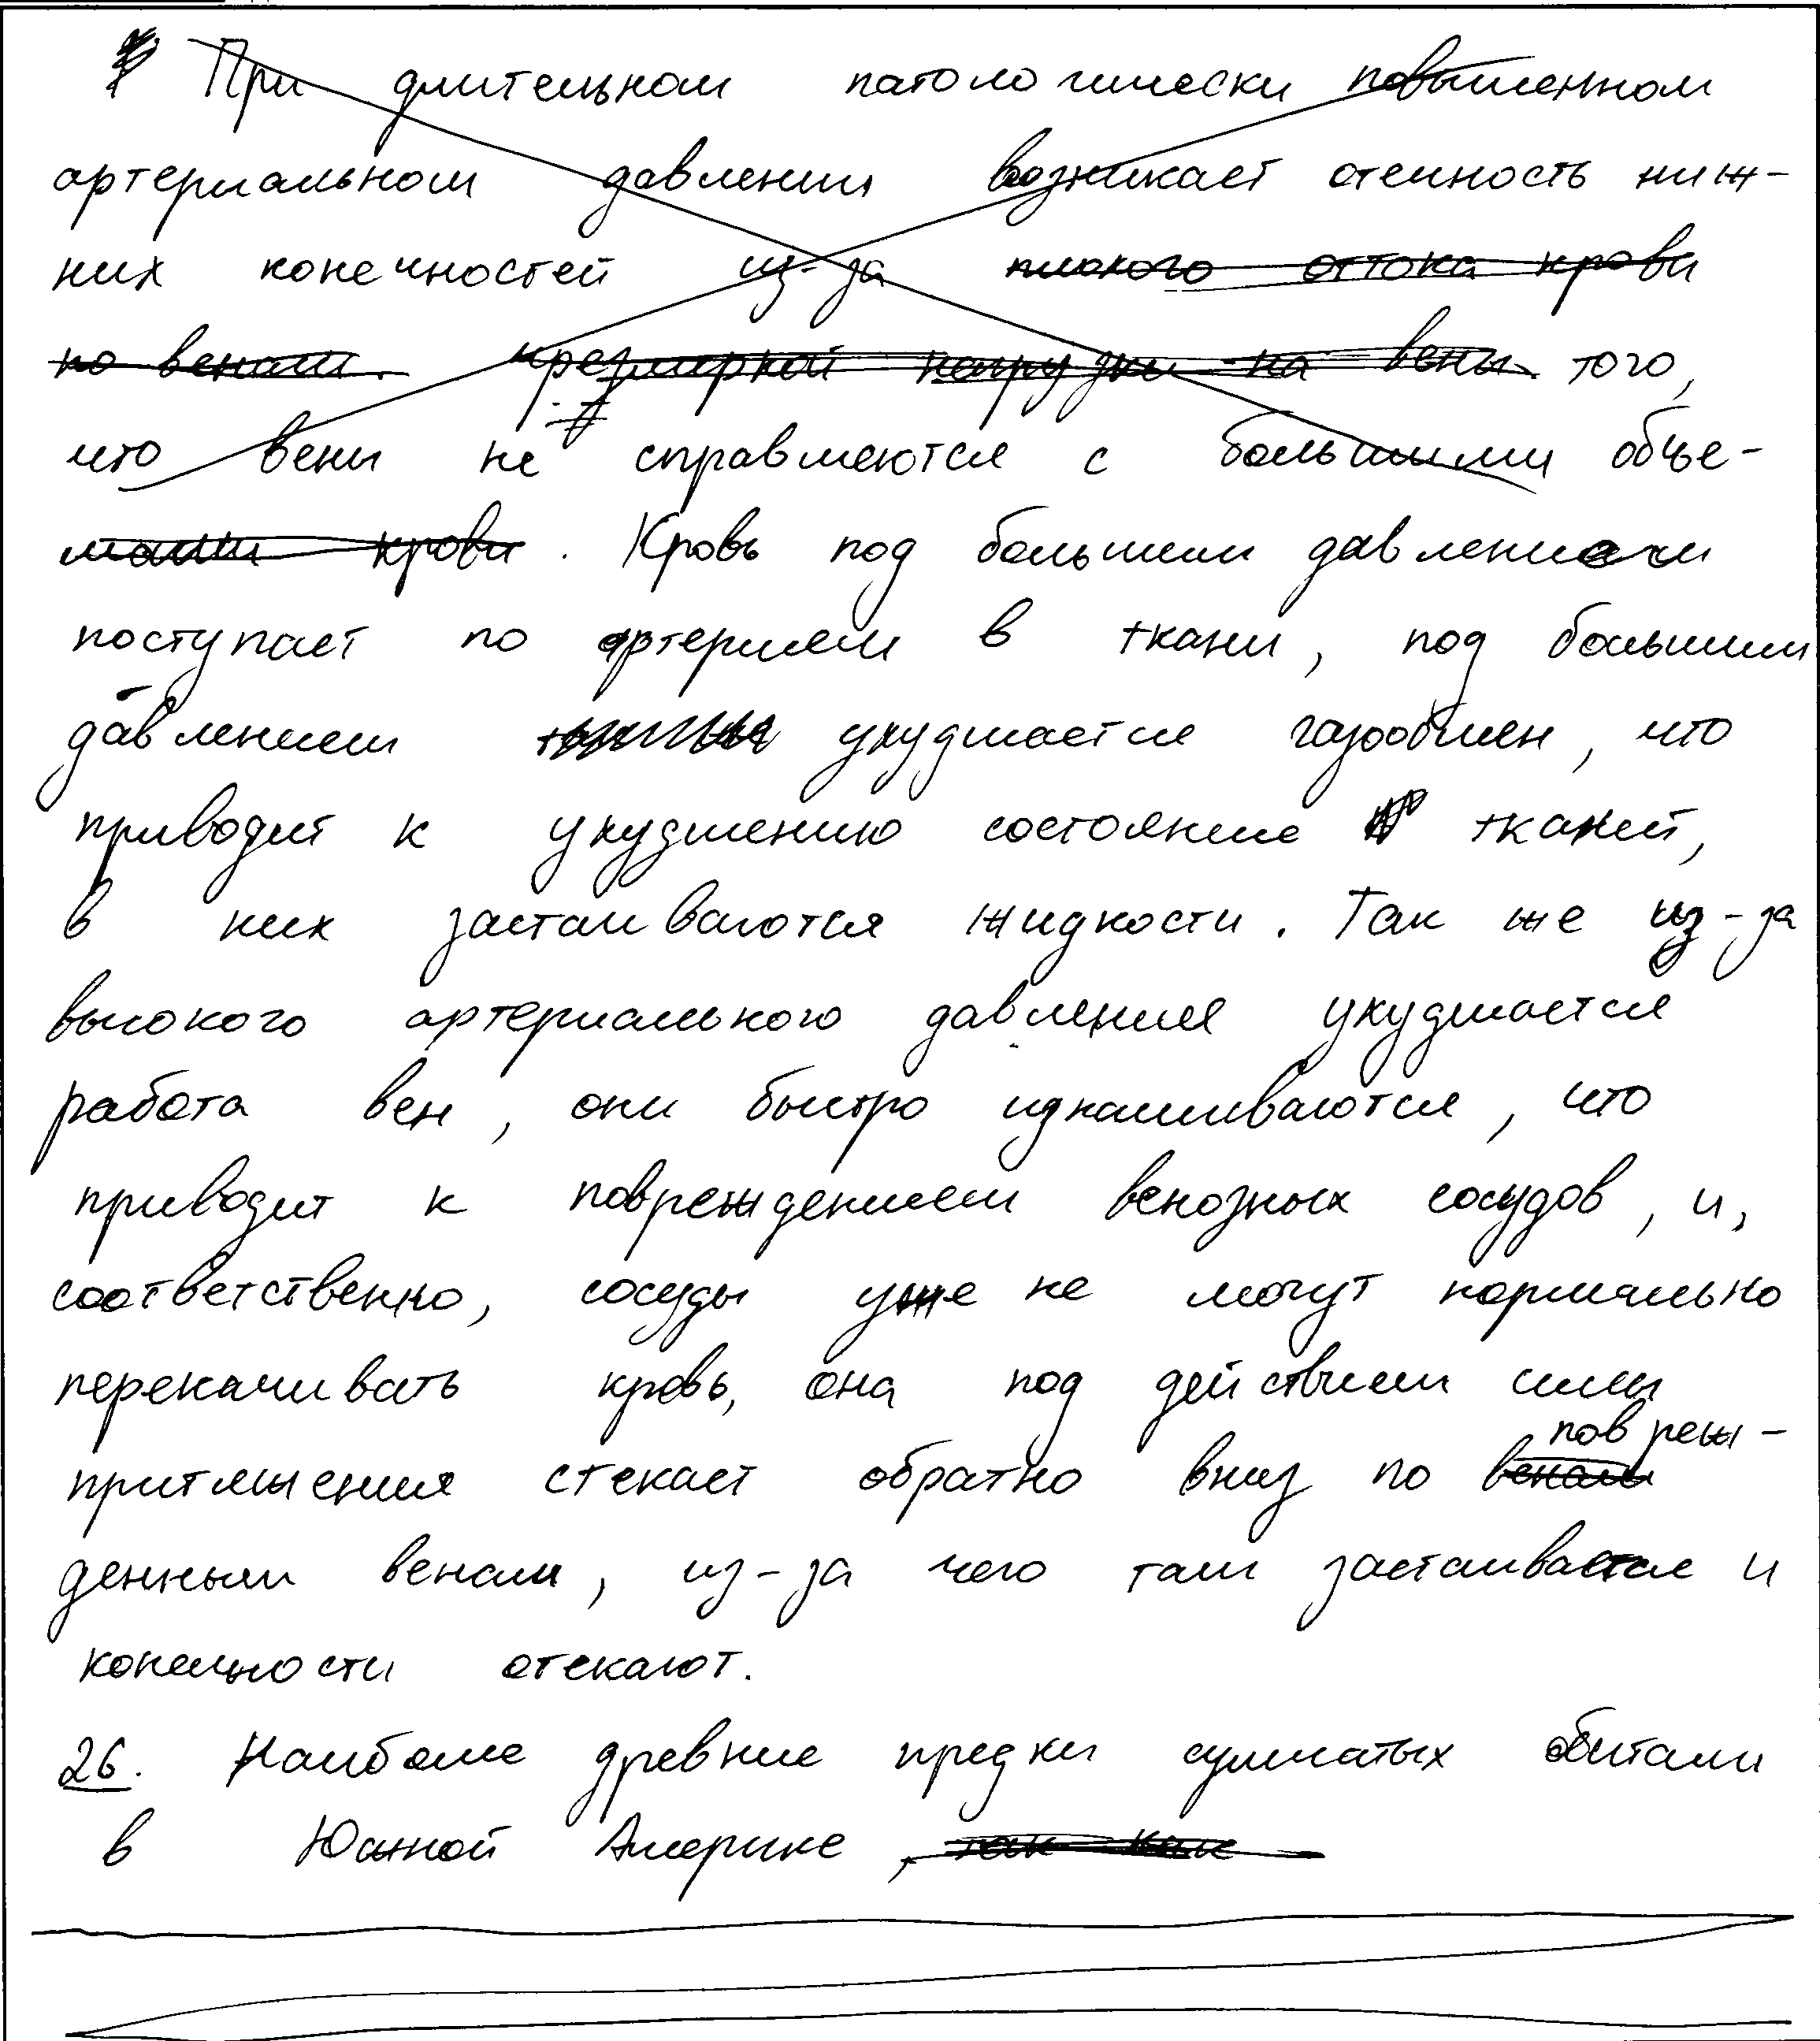 При длительном патологически повышенном
артериальном давлении возникает отечность ниж-
них конечностей из-за плохого оттока крови
по венам. чрезмерной нагрузки на вены. того,
что вены не справляются с большими объе-
мами крови. Кровь под большим давлением
поступает по артериям в ткани, под большим
давлением ухудшается газообмен, что
приводит к ухудшению состояние тканей,
в них застаиваются жидкости. Так же из-за
высокого артериального давления ухудшается
работа вен, они быстро изнашиваются, что
приводит к повреждениям венозных сосудов, и,
соответственно, сосуды уже не могут нормально
перекачивать кровь, она под действием силы
притяжения стекает обратно вниз по венам повреж-
денным венам, из-за чего там застаивается и
конечности отекают.
26. Наиболее древние предки сумчатых обитали
в Южной Америке, так как